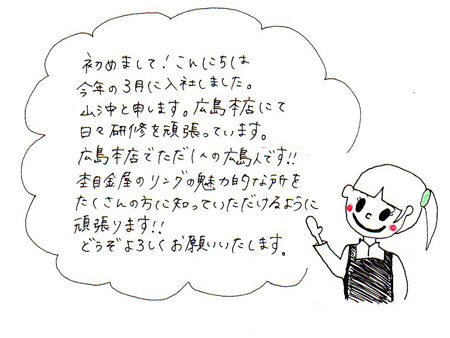 初めまして！こんにちは
今年の3月に入社しました。
山沖と申します。広島本店にて
日々研修を頑張っています。
広島本店でただ1人の広島人です!!
杢目金屋のリングの魅力的な所を
たくさんの方に知っていただけるように
頑張ります!!
どうぞよろしくお願いいたします。